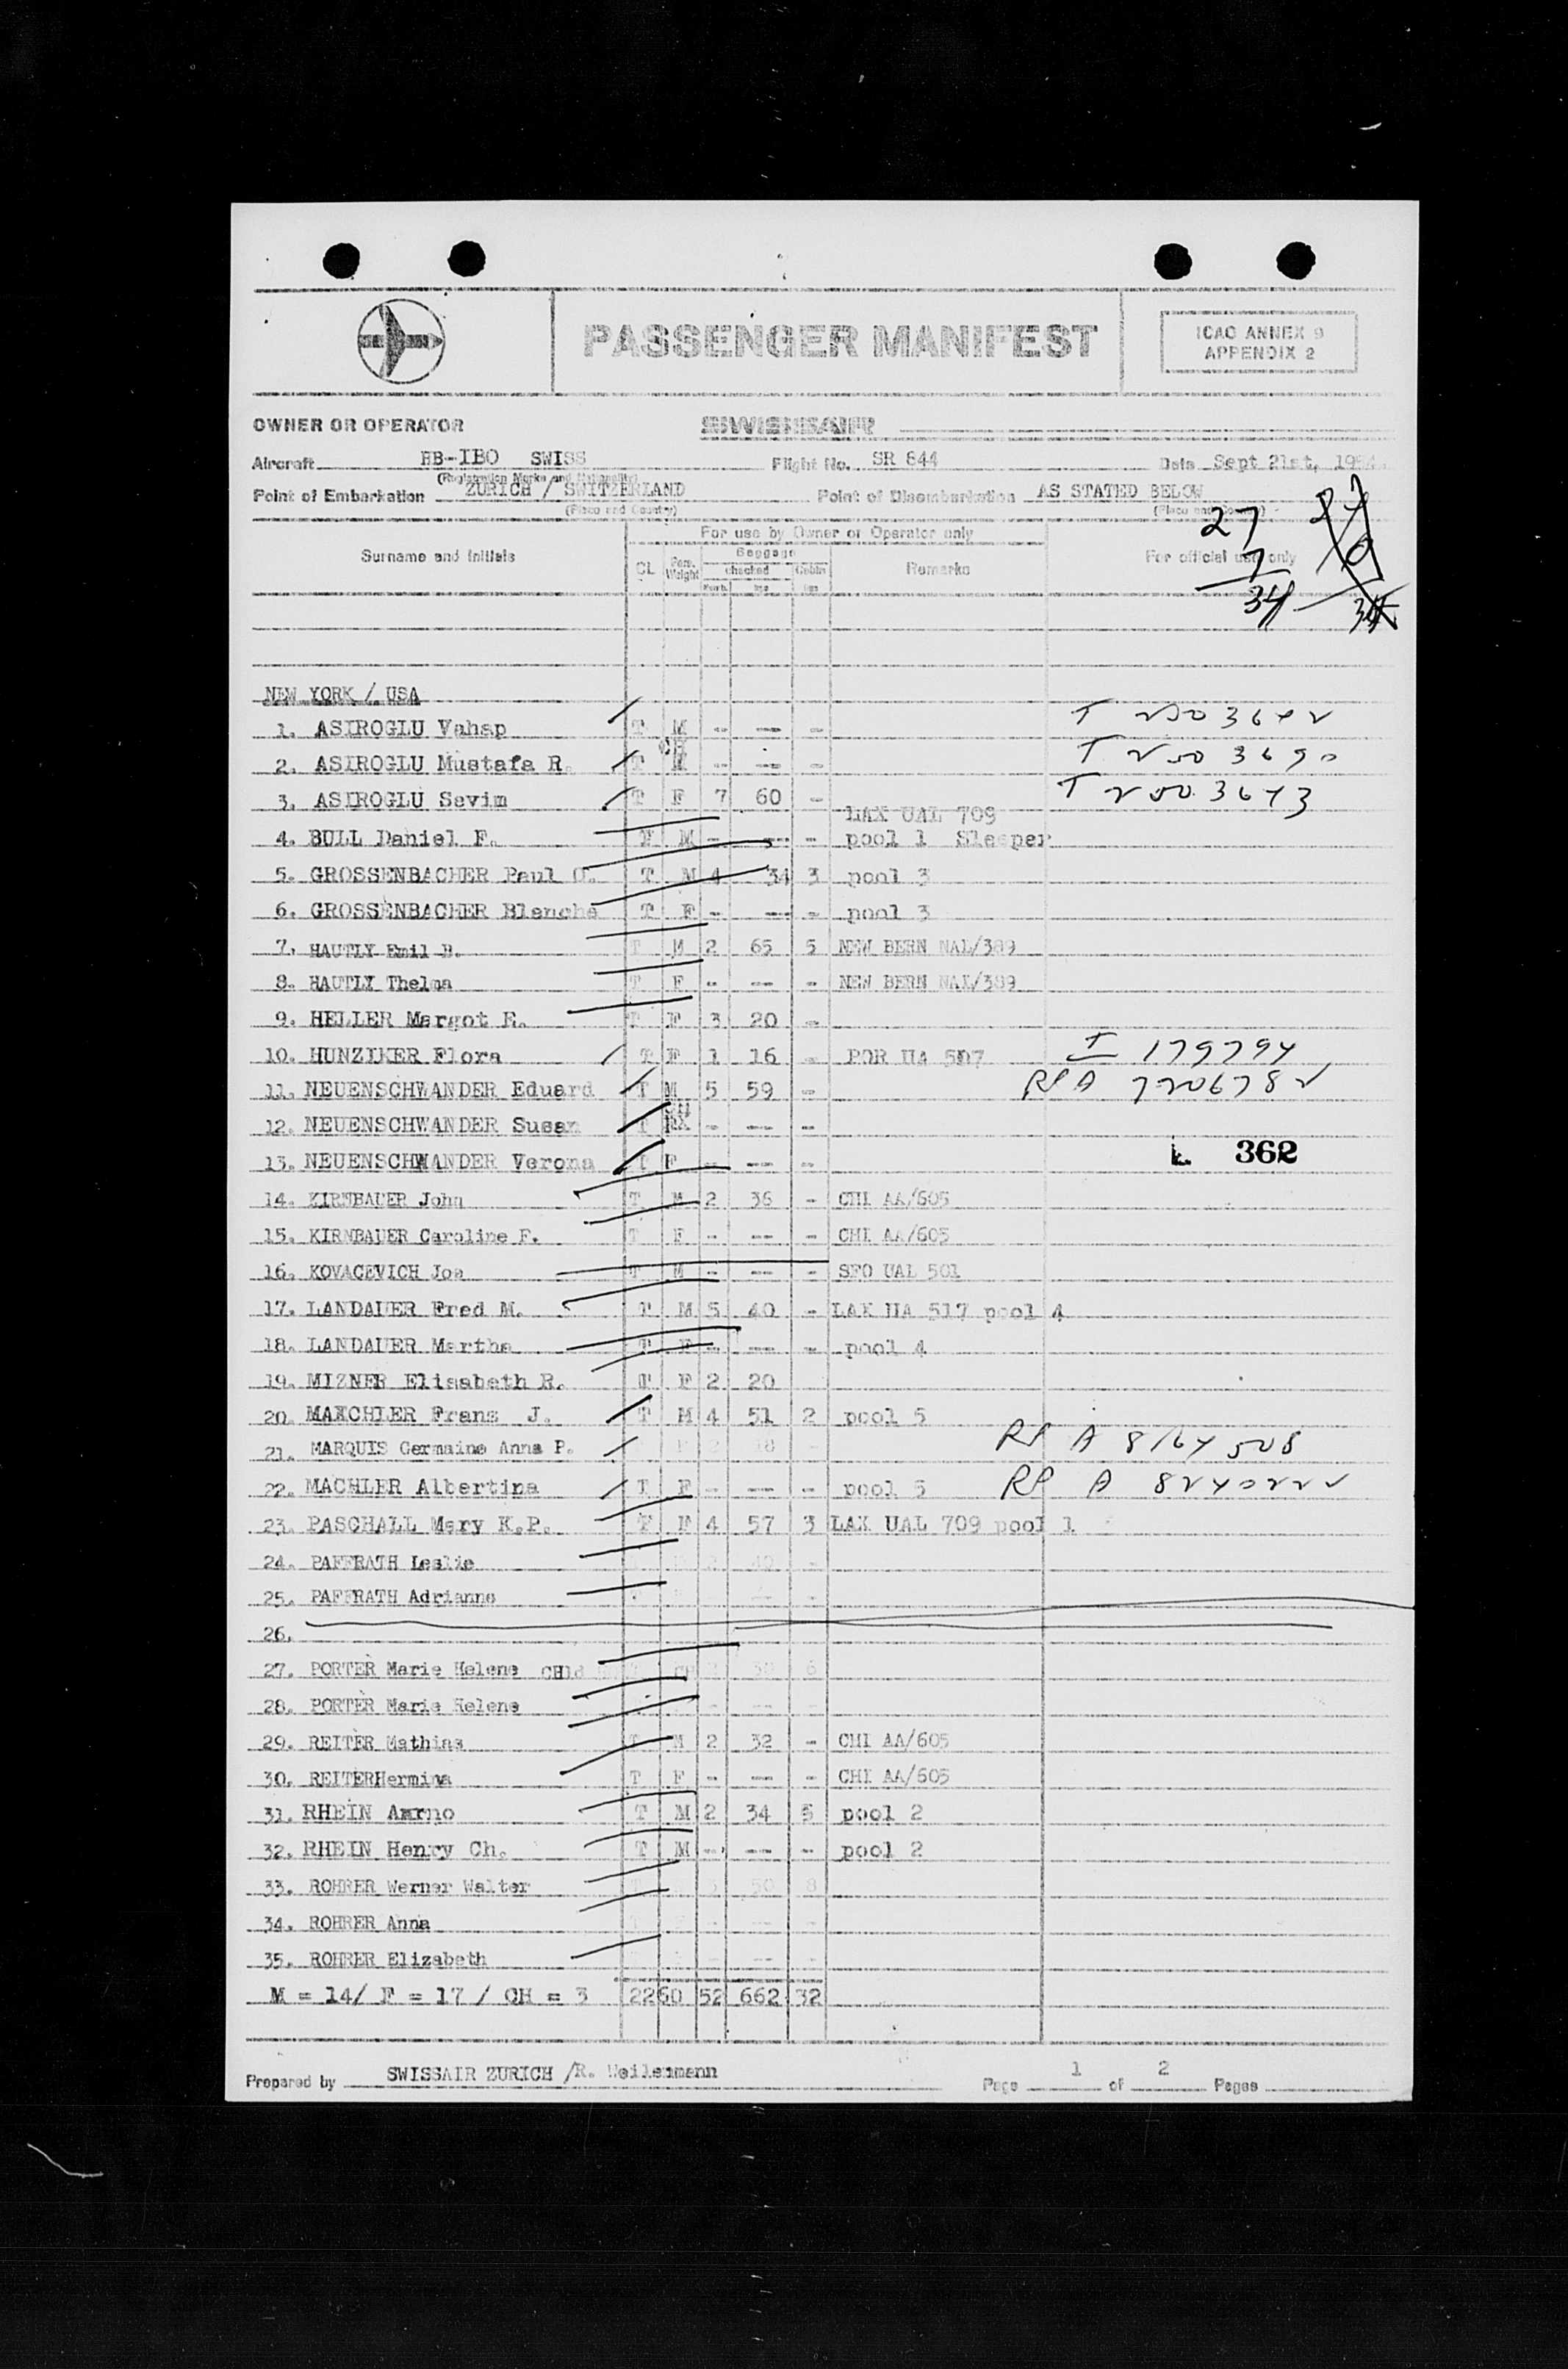 PASSENGER MANIFEST
ICAO ANNEX 9
APPENDIX 2
OWNER OR OPERATOR SWISSAIR
Aircraft HB-IBO SWISS Flight No. SR 844 Date Sept 21st,
(Registration Marks and Nationality)
Point of Embarkation ZURICH / SWITZERLAND Point of Disembarkation AS STATED BELOW
(Place and Country) (Place and Country)
27
7
34
Surname and Initials For use by Owner or Operator only For official use only
CL Pass. Weight Baggage Remarks
checked Cabin
NEW YORK / USA
1. ASIROGLU Vahap T M - --- -
CH
2. ASIROGLU Mustafa R. T M - --- -
3. ASIROGLU Sevim T F 7 60 -
LAX UAL 709
4. BULL Daniel F. T M - --- - pool 1 Sleeper
5. GROSSENBACHER Paul T M 4 34 3 pool 3
6. GROSSENBACHER Blanche T F - --- - pool 3
7. HAUTLY Emil H. T M 2 65 5 NEW BERN NAL/389
8. HAUTLY Thelma T F - --- - NEW BERN NAL/389
9. HELLER Margot E. T F 3 20 -
10. HUNZIKER Flora T F 1 16 - POR UA 507 I 179794
11. NEUENSCHWANDER Eduard T M 5 59 - RP A
12. NEUENSCHWANDER Susan T - --- -
13. NEUENSCHWANDER Verona T F - --- -
362
14. KIRNBAUER John T M 2 36 - CHI AA/605
15. KIRNBAUER Caroline F. T F - --- - CHI AA/605
16. KOVACEVICH Joe T M - --- - SFO UAL 501
17. LANDAUER Fred M. T M 5 40 - LAX UA 517 pool 4
18. LANDAUER Martha T F - --- - pool 4
19. MIZNER Elisabeth R. T F 2 20
20. MAXCHLER Frans J. T M 4 51 2 pool 5
21. MARQUIS Germaine Anna P. RP A 8164508
22. MACHLER Albertina T F - --- - pool 5 RP A
23. PASCHALL Mary K.P. T F 4 57 3 LAX UAL 709 pool 1
24. PAFFRATH Leslie
25. PAFFRATH Adrianne
26.
27. PORTER Marie Helene
28. PORTER Marie Helene
29. REITER Mathias T M 2 32 - CHI AA/605
30. REITERHermina T F - --- - CHI AA/605
31. RHEIN Aarno T M 2 34 5 pool 2
32. RHEIN Henry Ch. T M - --- - pool 2
33. ROHRER Werner Walter T 50 8
34. ROHRER Anna
35. ROHRER Elizabeth
M = 14/ F = 17 / CH = 3 2260 52 662 32
Prepared by SWISSAIR ZURICH /R. Weilenmann Page 1 of 2 Pages